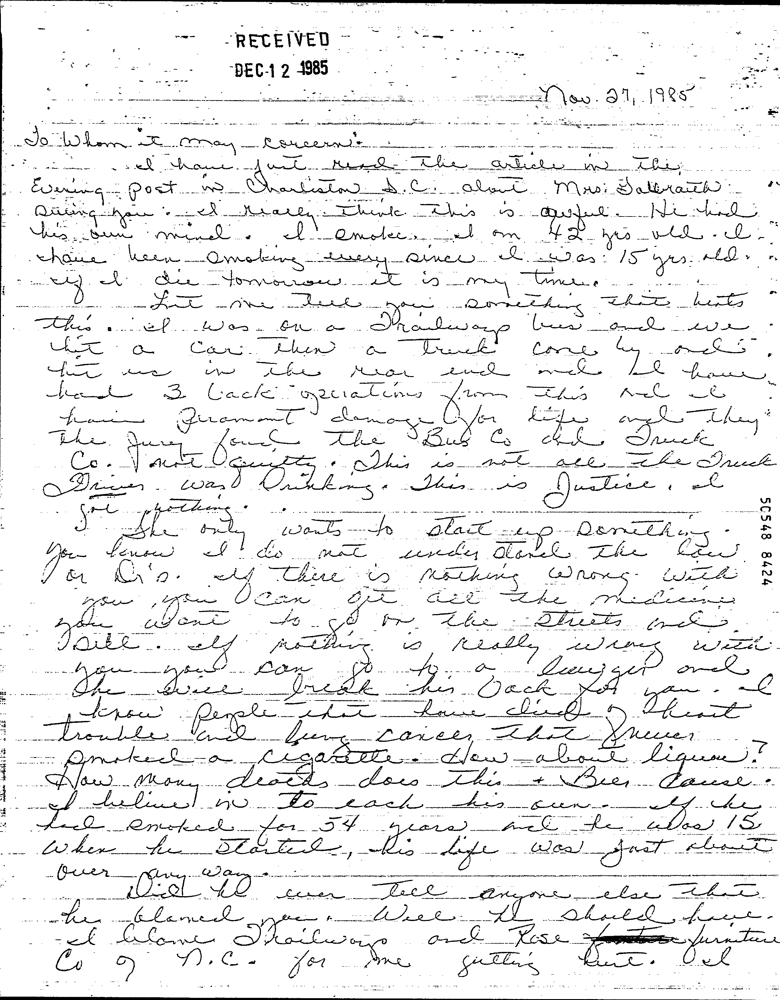 RECEIVED
DEC 12 1985
Nov. 27, 1985
To Whom it may concern:
I have just read the article in the
Evening Post in Charleston S.C. about Mrs. Galbraith
suing you. I really think this is awful. He had
his own mind. I smoke. I am 42 yrs old. I
have been smoking every since I was 15 yrs. old.
if I die tomorrow it is my time.
Let me tell you something that beats
this. I was on a Trailways bus and we
hit a car then a truck come by and
hit us in the rear end and I have
had 3 back operations from this and I
have damage for life and they
The Jury found the Bus Co and Truck
Co. not guilty. This is not all The Truck
Driver was Drinking. This is Justice. I
got nothing.
She only wants to start up something.
You know I do not under stand the law
or Dr's. If there is nothing wrong with
you, you can get all the medicine
you want to go on the streets and
sell. If nothing is really wrong with
you you can go to a and
She will break his back for you. I
know people that have died of heart
trouble and lung cancer that never
smoked a cigarette. How about liquor?
How many deaths does this + Beer Cause.
I believe in to each his own. If he
had smoked for 54 years and he was 15
When he started, his life was just about
over any way.
Did he ever tell anyone else that
he blamed you. Well he should have.
I blame Trailways and Rose furniture
Co of N.C. for me getting hurt. I
50548 8424